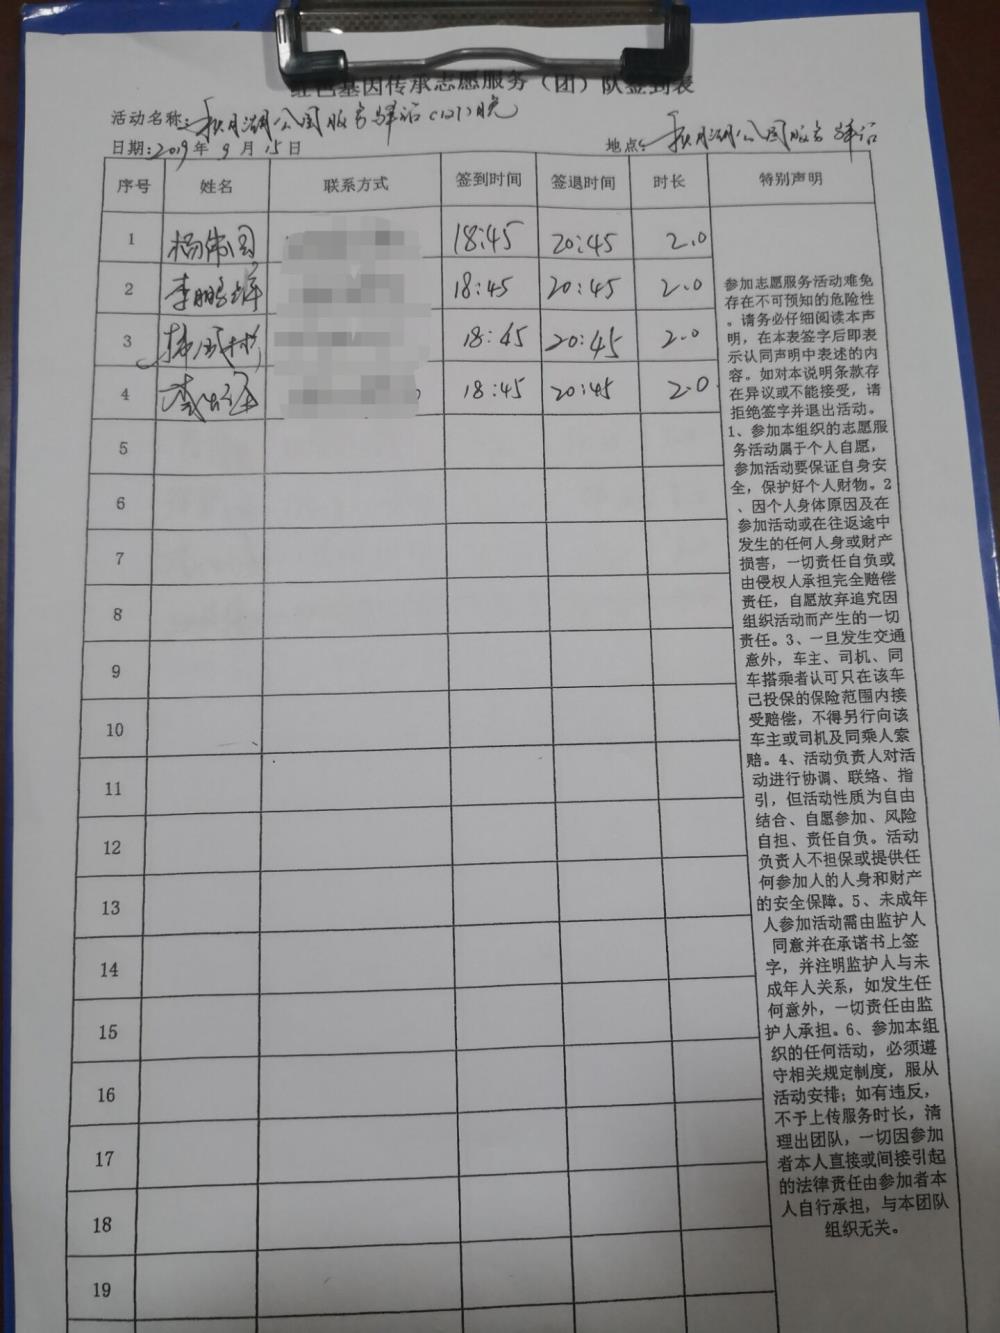 红色基因传承志愿服务（团）队签到表
活动名称：秋月湖公园服务驿站(121)晚
日期：2019年9月15日 地点：秋月湖公园服务驿站
序号 姓名 联系方式 签到时间 签退时间 时长 特别声明
1 杨伟国 18:45 20:45 2.0
2 李鹏辉 18:45 20:45 2.0
3 18:45 20:45 2.0
4 18:45 20:45 2.0
5
6
7
8
9
10
11
12
13
14
15
16
17
18
19
参加志愿服务活动难免
存在不可预知的危险性
。请务必仔细阅读本声
明，在本表签字后即表
示认同声明中表述的内
容。如对本说明条款存
在异议或不能接受，请
拒绝签字并退出活动。
1、参加本组织的志愿服
务活动属于个人自愿，
参加活动要保证自身安
全，保护好个人财物。2
、因个人身体原因及在
参加活动或在往返途中
发生的任何人身或财产
损害，一切责任自负或
由侵权人承担完全赔偿
责任，自愿放弃追究因
组织活动而产生的一切
责任。3、一旦发生交通
意外，车主、司机、同
车搭乘者认可只在该车
已投保的保险范围内接
受赔偿，不得另行向该
车主或司机及同乘人索
赔。4、活动负责人对活
动进行协调、联络、指
引，但活动性质为自由
结合、自愿参加、风险
自担、责任自负。活动
负责人不担保或提供任
何参加人的人身和财产
的安全保障。5、未成年
人参加活动需由监护人
同意并在承诺书上签
字，并注明监护人与未
成年人关系，如发生任
何意外，一切责任由监
护人承担。6、参加本组
织的任何活动，必须遵
守相关规定制度，服从
活动安排；如有违反，
不予上传服务时长，清
理出团队，一切因参加
者本人直接或间接引起
的法律责任由参加者本
人自行承担，与本团队
组织无关。